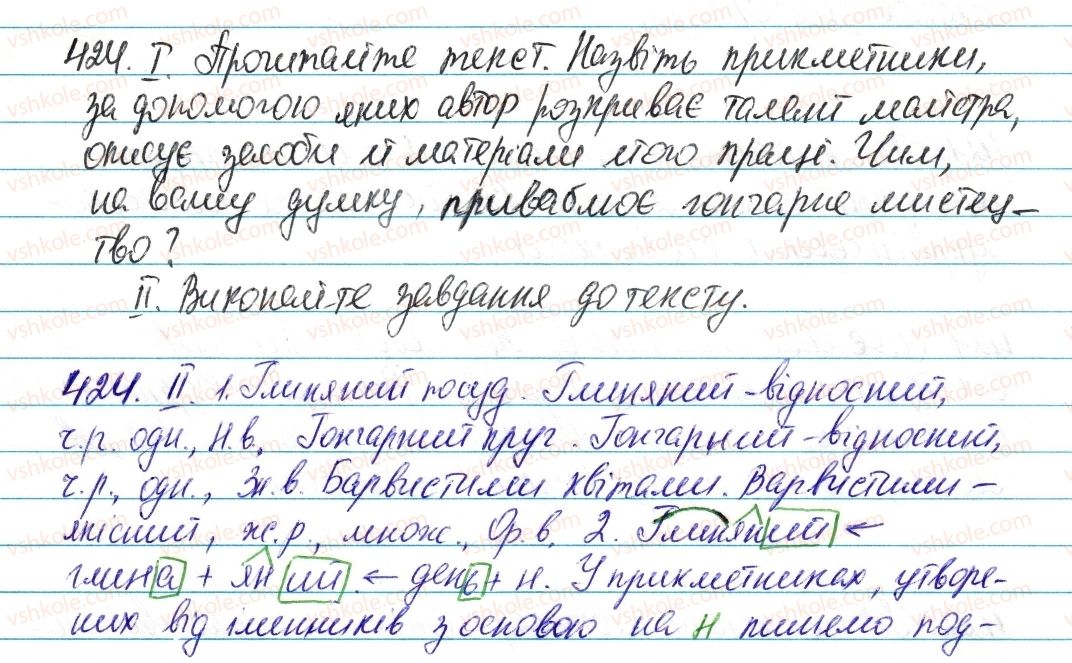 424. I. Прочитайте текст. Назвіть прикметники,
за допомогою яких автор розкриває талант майстра,
описує засоби й матеріали його праці. Чим,
на вашу думку, приваблює гончарне мистец-
тво?
II. Виконайте завдання до тексту.
424. II. 1. Глиняний посуд. Глиняний - відносний,
ч.р. одн., Н.в., Гончарний круг. Гончарний - відносний,
ч.р., одн., Зн.в. Барвистими квітами. Барвистими -
якісний, ж.р., множ., Ор.в. 2. Глиняний ←
глина + ян ий. ← день + н. У прикметниках, утворе-
них від іменників з основою на н пишемо под-